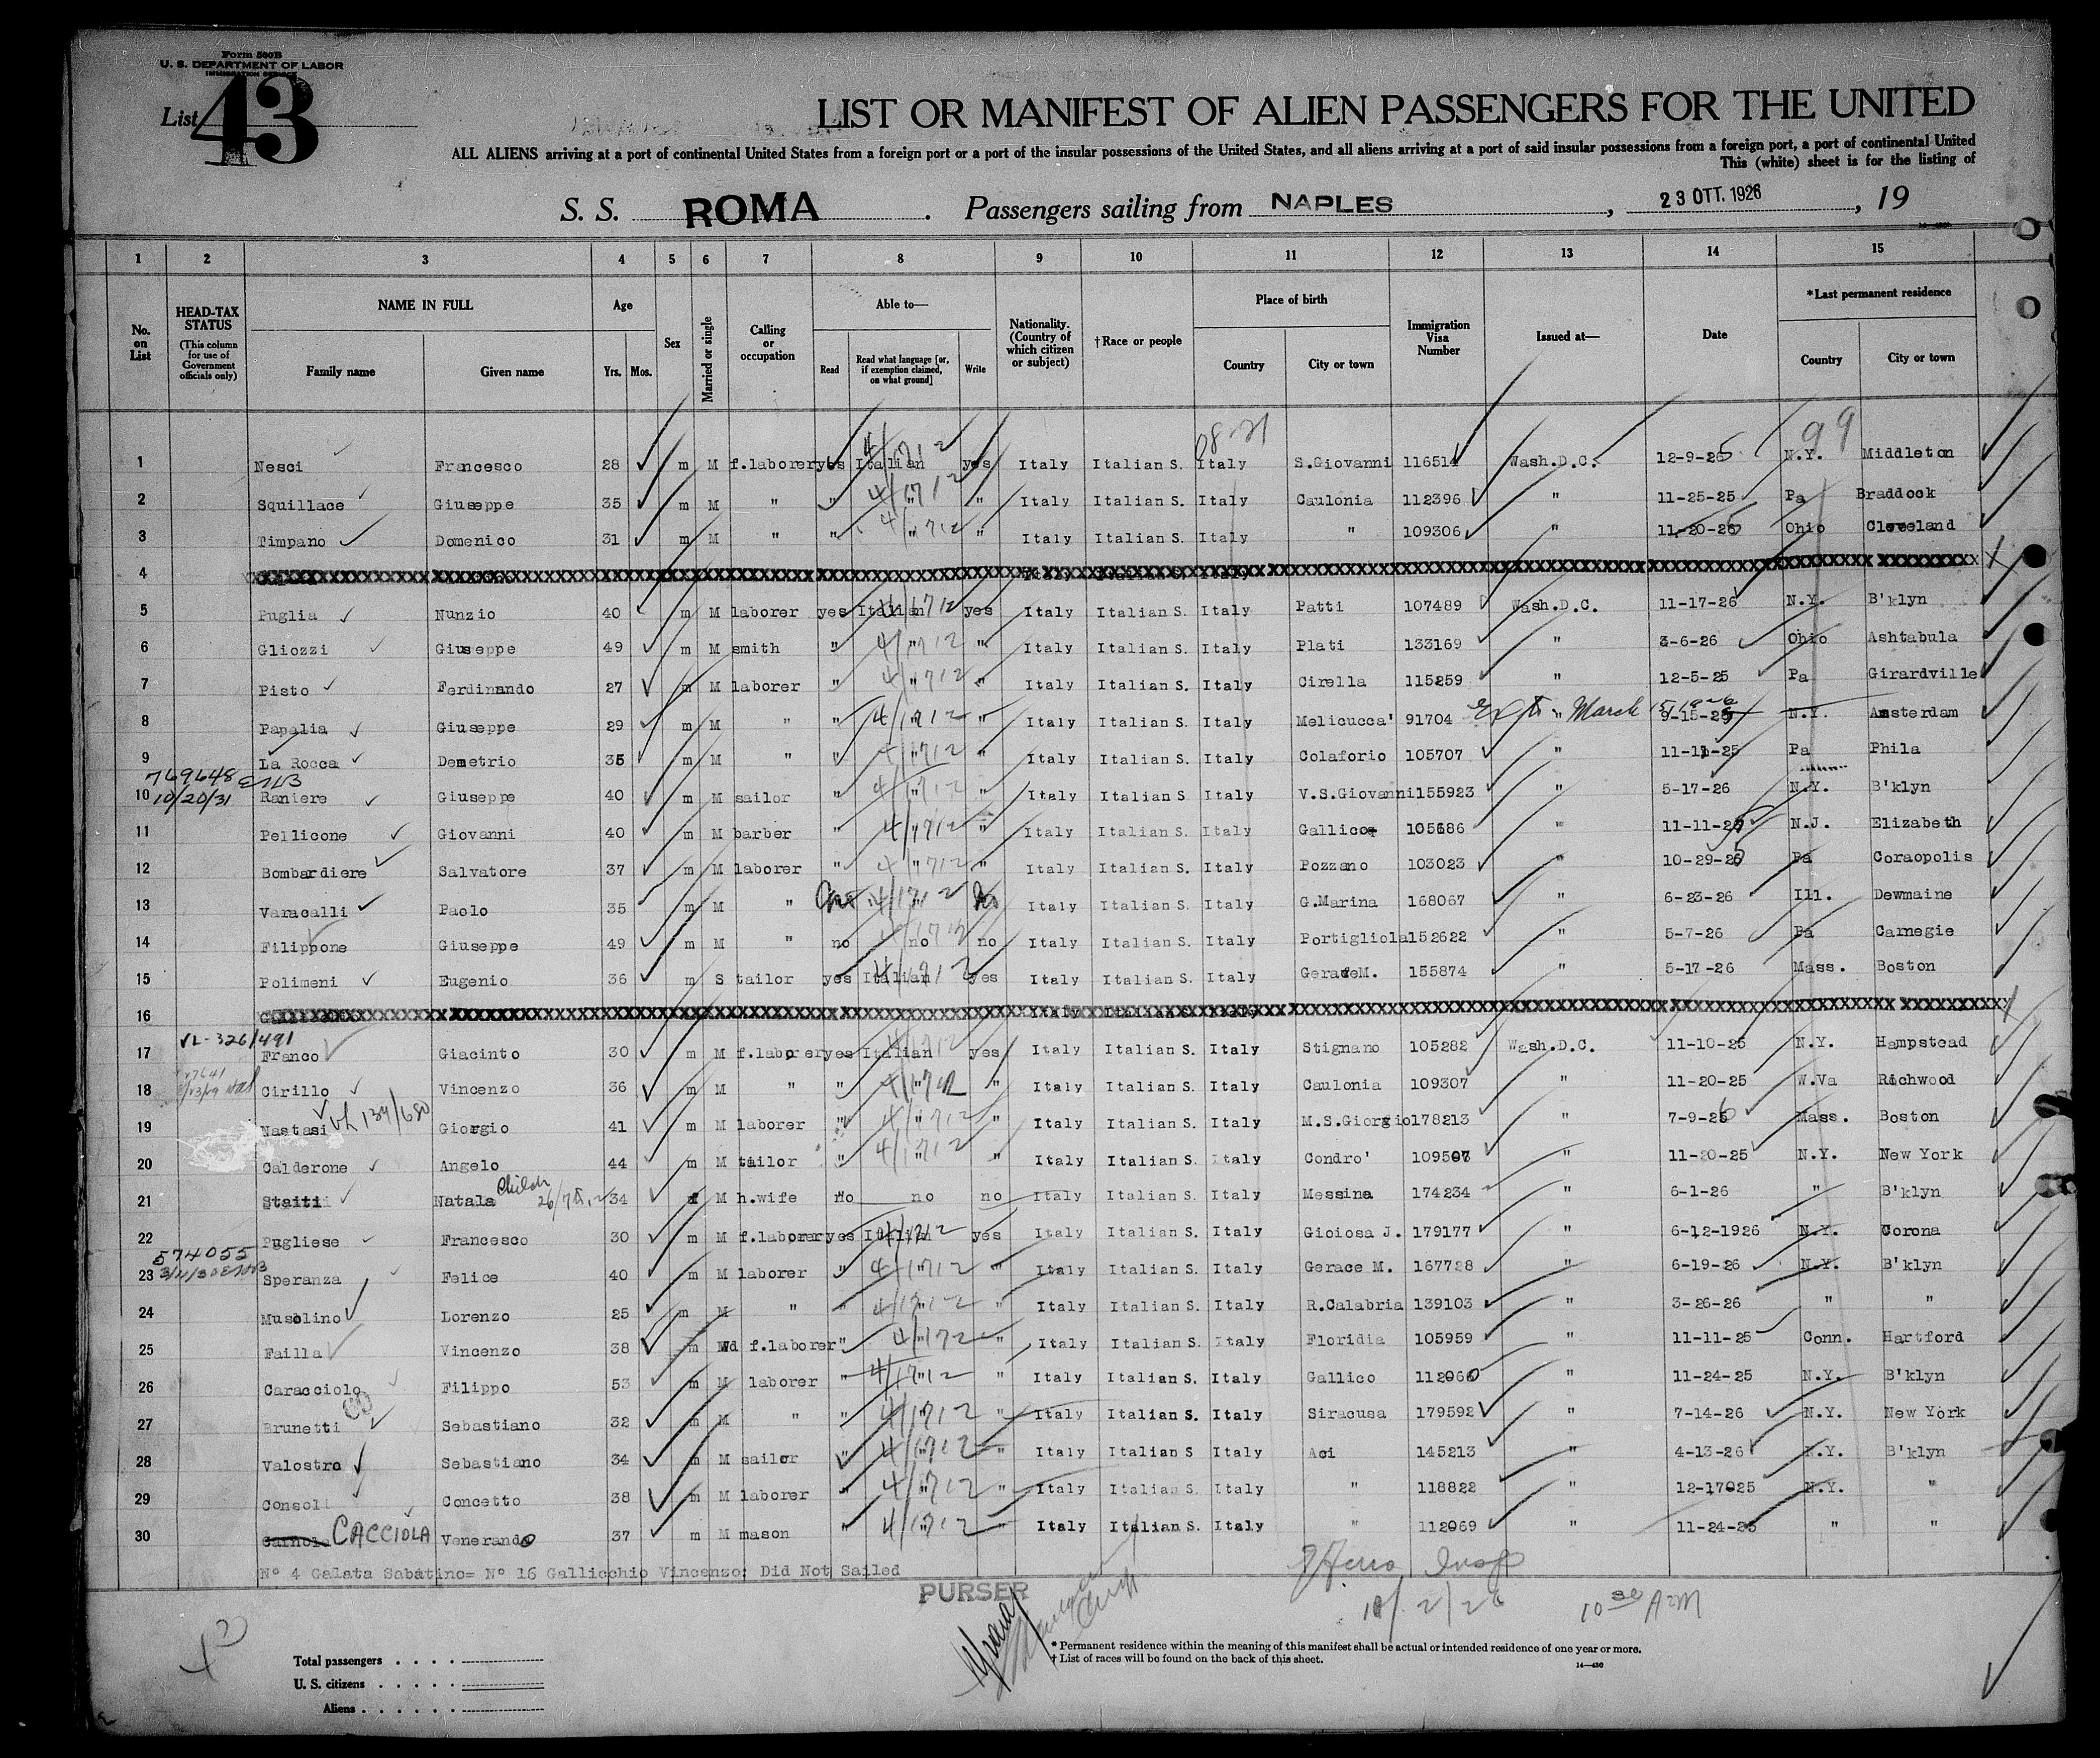 Form 500B
U. S. DEPARTMENT OF LABOR
IMMIGRATION SERVICE
List 43
LIST OR MANIFEST OF ALIEN PASSENGERS FOR THE UNITED
ALL ALIENS arriving at a port of continental United States from a foreign port or a port of the insular possessions of the United States, and all aliens arriving at a port of said insular possessions from a foreign port, a port of continental United
This (white) sheet is for the listing of
S. S. ROMA . Passengers sailing from NAPLES , 23 OTT. 1926 , 19
1 2 3 4 5 6 7 8 9 10 11 12 13 14 15
No. on List
HEAD-TAX STATUS (This column for use of Government officials only)
NAME IN FULL
Family name Given name
Age
Yrs. Mos.
Sex
Married or single
Calling or occupation
Able to—
Read Read what language [or, if exemption claimed, on what ground] Write
Nationality. (Country of which citizen or subject)
†Race or people
Place of birth
Country City or town
Immigration Visa Number
Issued at—
Date
*Last permanent residence
Country City or town
99
1 Nesci Francesco 28 m M f.laborer yes Italian yes Italy Italian S. Italy S.Giovanni 116514 Wash.D.C. 12-9-25 N.Y. Middleton
2 Squillace Giuseppe 35 m M " " " " Italy Italian S. Italy Caulonia 112396 " 11-25-25 Pa Braddock
3 Timpano Domenico 31 m M " " " " Italy Italian S. Italy " 109306 " 11-20-25 Ohio Cleveland
4 Italy Italian S. Italy
5 Puglia Nunzio 40 m M laborer yes Italian yes Italy Italian S. Italy Patti 107489 Wash.D.C. 11-17-26 N.Y. B'klyn
6 Gliozzi Giuseppe 49 m M smith " " " Italy Italian S. Italy Plati 133169 " 3-6-26 Ohio Ashtabula
7 Pisto Ferdinando 27 m M laborer " " " Italy Italian S. Italy Cirella 115259 " 12-5-25 Pa Girardville
8 Papalia Giuseppe 29 m M " " " " Italy Italian S. Italy Melicucca' 91704 " March 9-15-25 N.Y. Amsterdam
9 La Rocca Demetrio 35 m M " " " " Italy Italian S. Italy Colaforio 105707 " 11-11-25 Pa Phila
769648
10/20/31
10 Raniere Giuseppe 40 m M sailor " " " Italy Italian S Italy V.S.Giovanni 155923 " 5-17-26 N.Y. B'klyn
11 Pellicone Giovanni 40 m M barber " " " Italy Italian S. Italy Gallico 105686 " 11-11-25 N.J. Elizabeth
12 Bombardiere Salvatore 37 m M laborer " " " Italy Italian S. Italy Pozzano 103023 " 10-29-25 Pa Coraopolis
13 Varacalli Paolo 35 m M " " Italy Italian S. Italy G.Marina 168067 " 6-23-26 Ill. Dewmaine
14 Filippone Giuseppe 49 m M " no no no Italy Italian S. Italy Portigliola 152622 " 5-7-26 Pa Carnegie
15 Polimeni Eugenio 36 m S tailor yes Italian yes Italy Italian S. Italy GeraceM. 155874 " 5-17-26 Mass. Boston
16 Italy Italian S. Italy
VL-326/491
17 Franco Giacinto 30 m M f.laborer yes Italian yes Italy Italian S. Italy Stignano 105282 Wash.D.C. 11-10-25 N.Y. Hampstead
18 Cirillo Vincenzo 36 m M " " " " Italy Italian S. Italy Caulonia 109307 " 11-20-25 W.Va Richwood
19 Nastasi VL 134/680 Giorgio 41 m M laborer " " " Italy Italian S. Italy M.S.Giorgio 178213 " 7-9-26 Mass. Boston
20 Calderone Angelo 44 m M tailor " " " Italy Italian S. Italy Condro' 109507 " 11-20-25 N.Y. New York
21 Staiti Natala 34 f M h.wife no no no Italy Italian S. Italy Messina 174234 " 6-1-26 " B'klyn
22 Pugliese Francesco 30 m M f.laborer yes Italian yes Italy Italian S. Italy Gioiosa J. 179177 " 6-12-1926 N.Y. Corona
574055
23 Speranza Felice 40 m M laborer " " " Italy Italian S. Italy Gerace M. 167728 " 6-19-26 N.Y. B'klyn
24 Musolino Lorenzo 25 m M " " " " Italy Italian S. Italy R.Calabria 139103 " 3-26-26 " "
25 Failla Vincenzo 38 m Wd f.laborer " " " Italy Italian S. Italy Floridia 105959 " 11-11-25 Conn. Hartford
26 Caracciolo Filippo 53 m M laborer " " " Italy Italian S. Italy Gallico 112060 " 11-24-25 N.Y. B'klyn
27 Brunetti Sebastiano 32 m M " " " " Italy Italian S. Italy Siracusa 179592 " 7-14-26 N.Y. New York
28 Valostro Sebastiano 34 m M sailor " " " Italy Italian S Italy Aci 145213 " 4-13-26 N.Y. B'klyn
29 Consoli Concetto 38 m M laborer " " " Italy Italian S. Italy " 118822 " 12-17025 N.Y. "
30 CACCIOLA Venerando 37 m M mason " " " Italy Italian S. Italy " 112069 " 11-24-25 " "
Nº 4 Galata Sabatino= Nº 16 Gallicchio Vincenzo: Did Not Sailed
PURSER
10 30 AM
* Permanent residence within the meaning of this manifest shall be actual or intended residence of one year or more.
† List of races will be found on the back of this sheet.
Total passengers . . . .
U. S. citizens . . . . .
Aliens . . . . . .